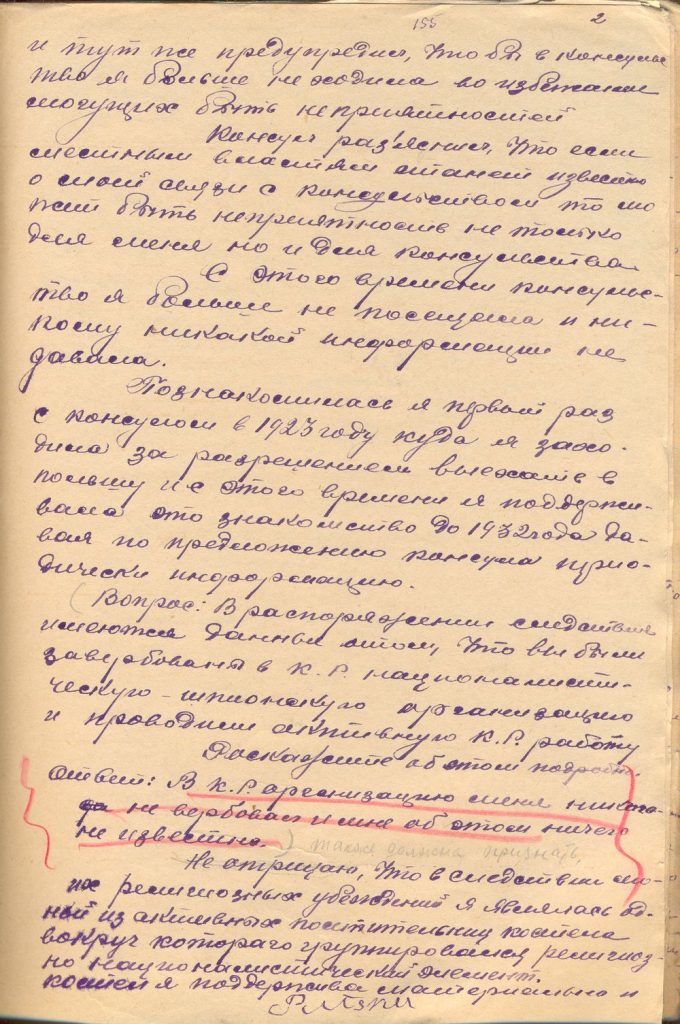 155
2
и тут же предупредил, что бы в консульс
тво я больше не ходила во избежании
могущих быть неприятностей
Консул раз'яснил, что если
местным властям станет известно
о моей связи с консульством то мо
жет быть неприятность не только
для меня но и для консульства.
С этого времени консульс-
тво я больше не посещала и ни-
кому никакой информации не
давала.
Познакомилась я первый раз
с консулом в 1923 году куда я захо-
дила за разрешением выехать в
польшу и с этого времени я поддержи-
вала это знакомство до 1932 года да-
вая по предложению консула прио-
дически информацию.
(Вопрос: В распоряжении следствия
имеются данные отом, что вы были
завербованы в К.Р. националисти-
ческую-шпионскую организацию
и проводили активную К.Р. работу
Раскажите об этом подробно.
Ответ: В К.Р. организацию меня никог-
да не вербовал и мне об этом ничего
не известно.) также должна признать,
Не отрицаю, что в следствии мо-
их религиозных убеждений я являлась од-
ной из активных посетительниц костела
вокруг которого группировался религиоз-
но националистический элемент.
костел я поддержива материально и